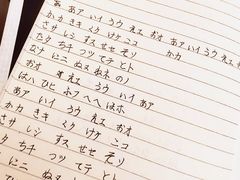 あ あア いイ うウ えエ おオ あア いイ うウ えエ
かカ きキ くク けケ こコ かカ
さサ しシ すス せセ そソ
たタ ちチ つツ てテ とト
なナ にニ ぬヌ ねネ のノ
おオ えエ うウ
はハ ひヒ ふフ へヘ ほホ
あア いイ うウ えエ おオ いイ あア
かカ きキ くク けケ こコ
さサ しシ すス せセ そソ
たタ ちチ つツ てテ とト
なナ にニ ぬヌ ねネ